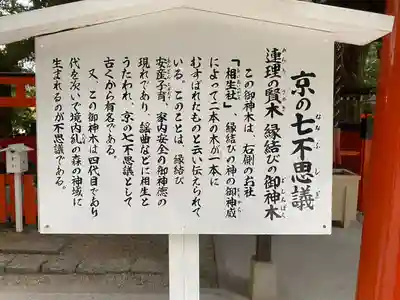 京の七不思議
ななふしぎ
連理の賢木 縁結びの御神木
れんり さかき ごしんぼく
この御神木は、右側のお社
「相生社」、縁結びの神の御神威
によって二本の木が一本に
むすばれたものと云い伝えられて
いる。このことは、縁結び
安産子育、家内安全の御神徳の
現れであり、謡曲などに相生と
うたわれ、京の七不思議として
古くから有名である。
又、この御神木は四代目であり
代を次いで境内糺の森の神域に
生まれるのが不思議である。